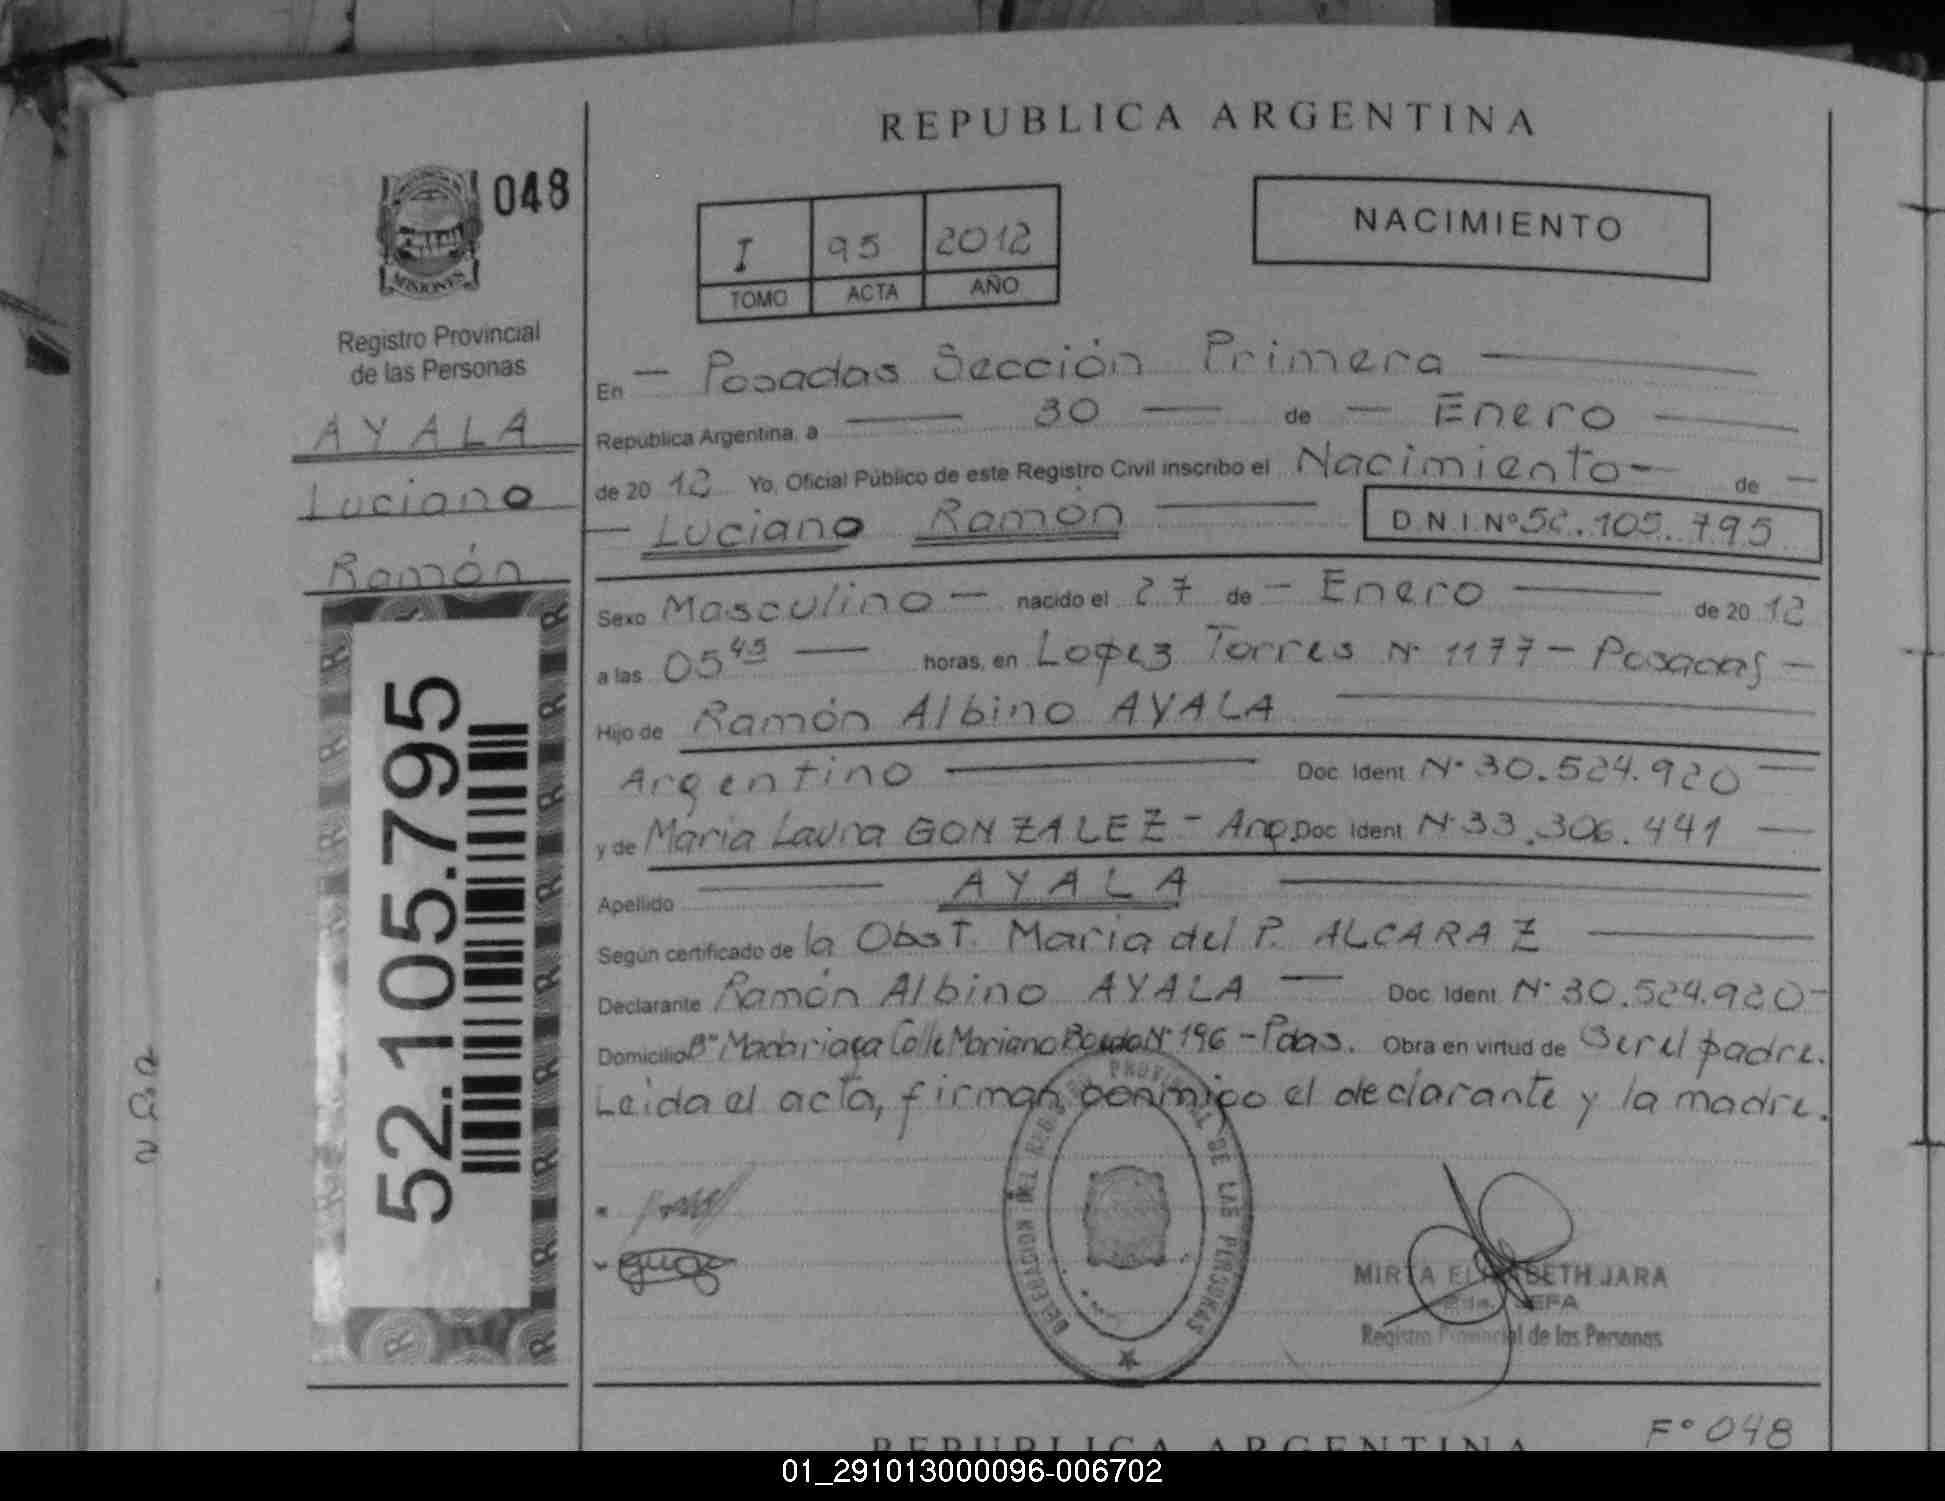 REPUBLICA ARGENTINA
048
MISIONES
Registro Provincial
de las Personas
AYALA
Luciano
Ramón
52.105.795
I 95 2012
TOMO ACTA AÑO
NACIMIENTO
En — Posadas Sección Primera —
República Argentina, a — 30 — de — Enero —
de 2012 Yo, Oficial Público de este Registro Civil inscribo el Nacimiento — de —
— Luciano Ramón — D.N.I. Nº 52.105.795
Sexo Masculino — nacido el 27 de — Enero — de 2012
a las 05 45 — horas, en Lopez Torres Nº 1177 — Posadas —
Hijo de Ramón Albino AYALA —
Argentino — Doc. Ident. Nº 30.524.920 —
y de Maria Laura GONZALEZ - Arg. Doc. Ident. Nº 33.306.441 —
Apellido — AYALA —
Según certificado de la Obst. Maria del P. ALCARAZ —
Declarante Ramón Albino AYALA — Doc. Ident. Nº 30.524.920 -
Domicilio Bº Madariaga Calle Mariano Boedo Nº 196 - Pdas. Obra en virtud de Ser el padre.
Leida el acta, firman conmigo el declarante y la madre.
DELEGACION DEL REGISTRO PROVINCIAL DE LAS PERSONAS
MIRTA ELIZABETH JARA
JEFA
Registro Provincial de las Personas
Fº 048
REPUBLICA ARGENTINA
01_291013000096-006702